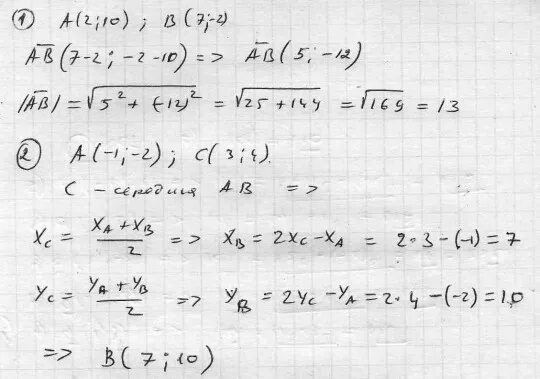 ① A(2;10) ; B(7;-2)
AB(7-2; -2-10) => AB(5; -12)
|AB| = √5² + (-12)² = √25+144 = √169 = 13
② A(-1;-2) ; C(3;4).
C - середина AB =>
Xc = XA + XB / 2 => XB = 2Xc - XA = 2·3-(-1) = 7
Yc = YA + YB / 2 => YB = 2Yc - YA = 2·4-(-2) = 10
=> B(7;10)